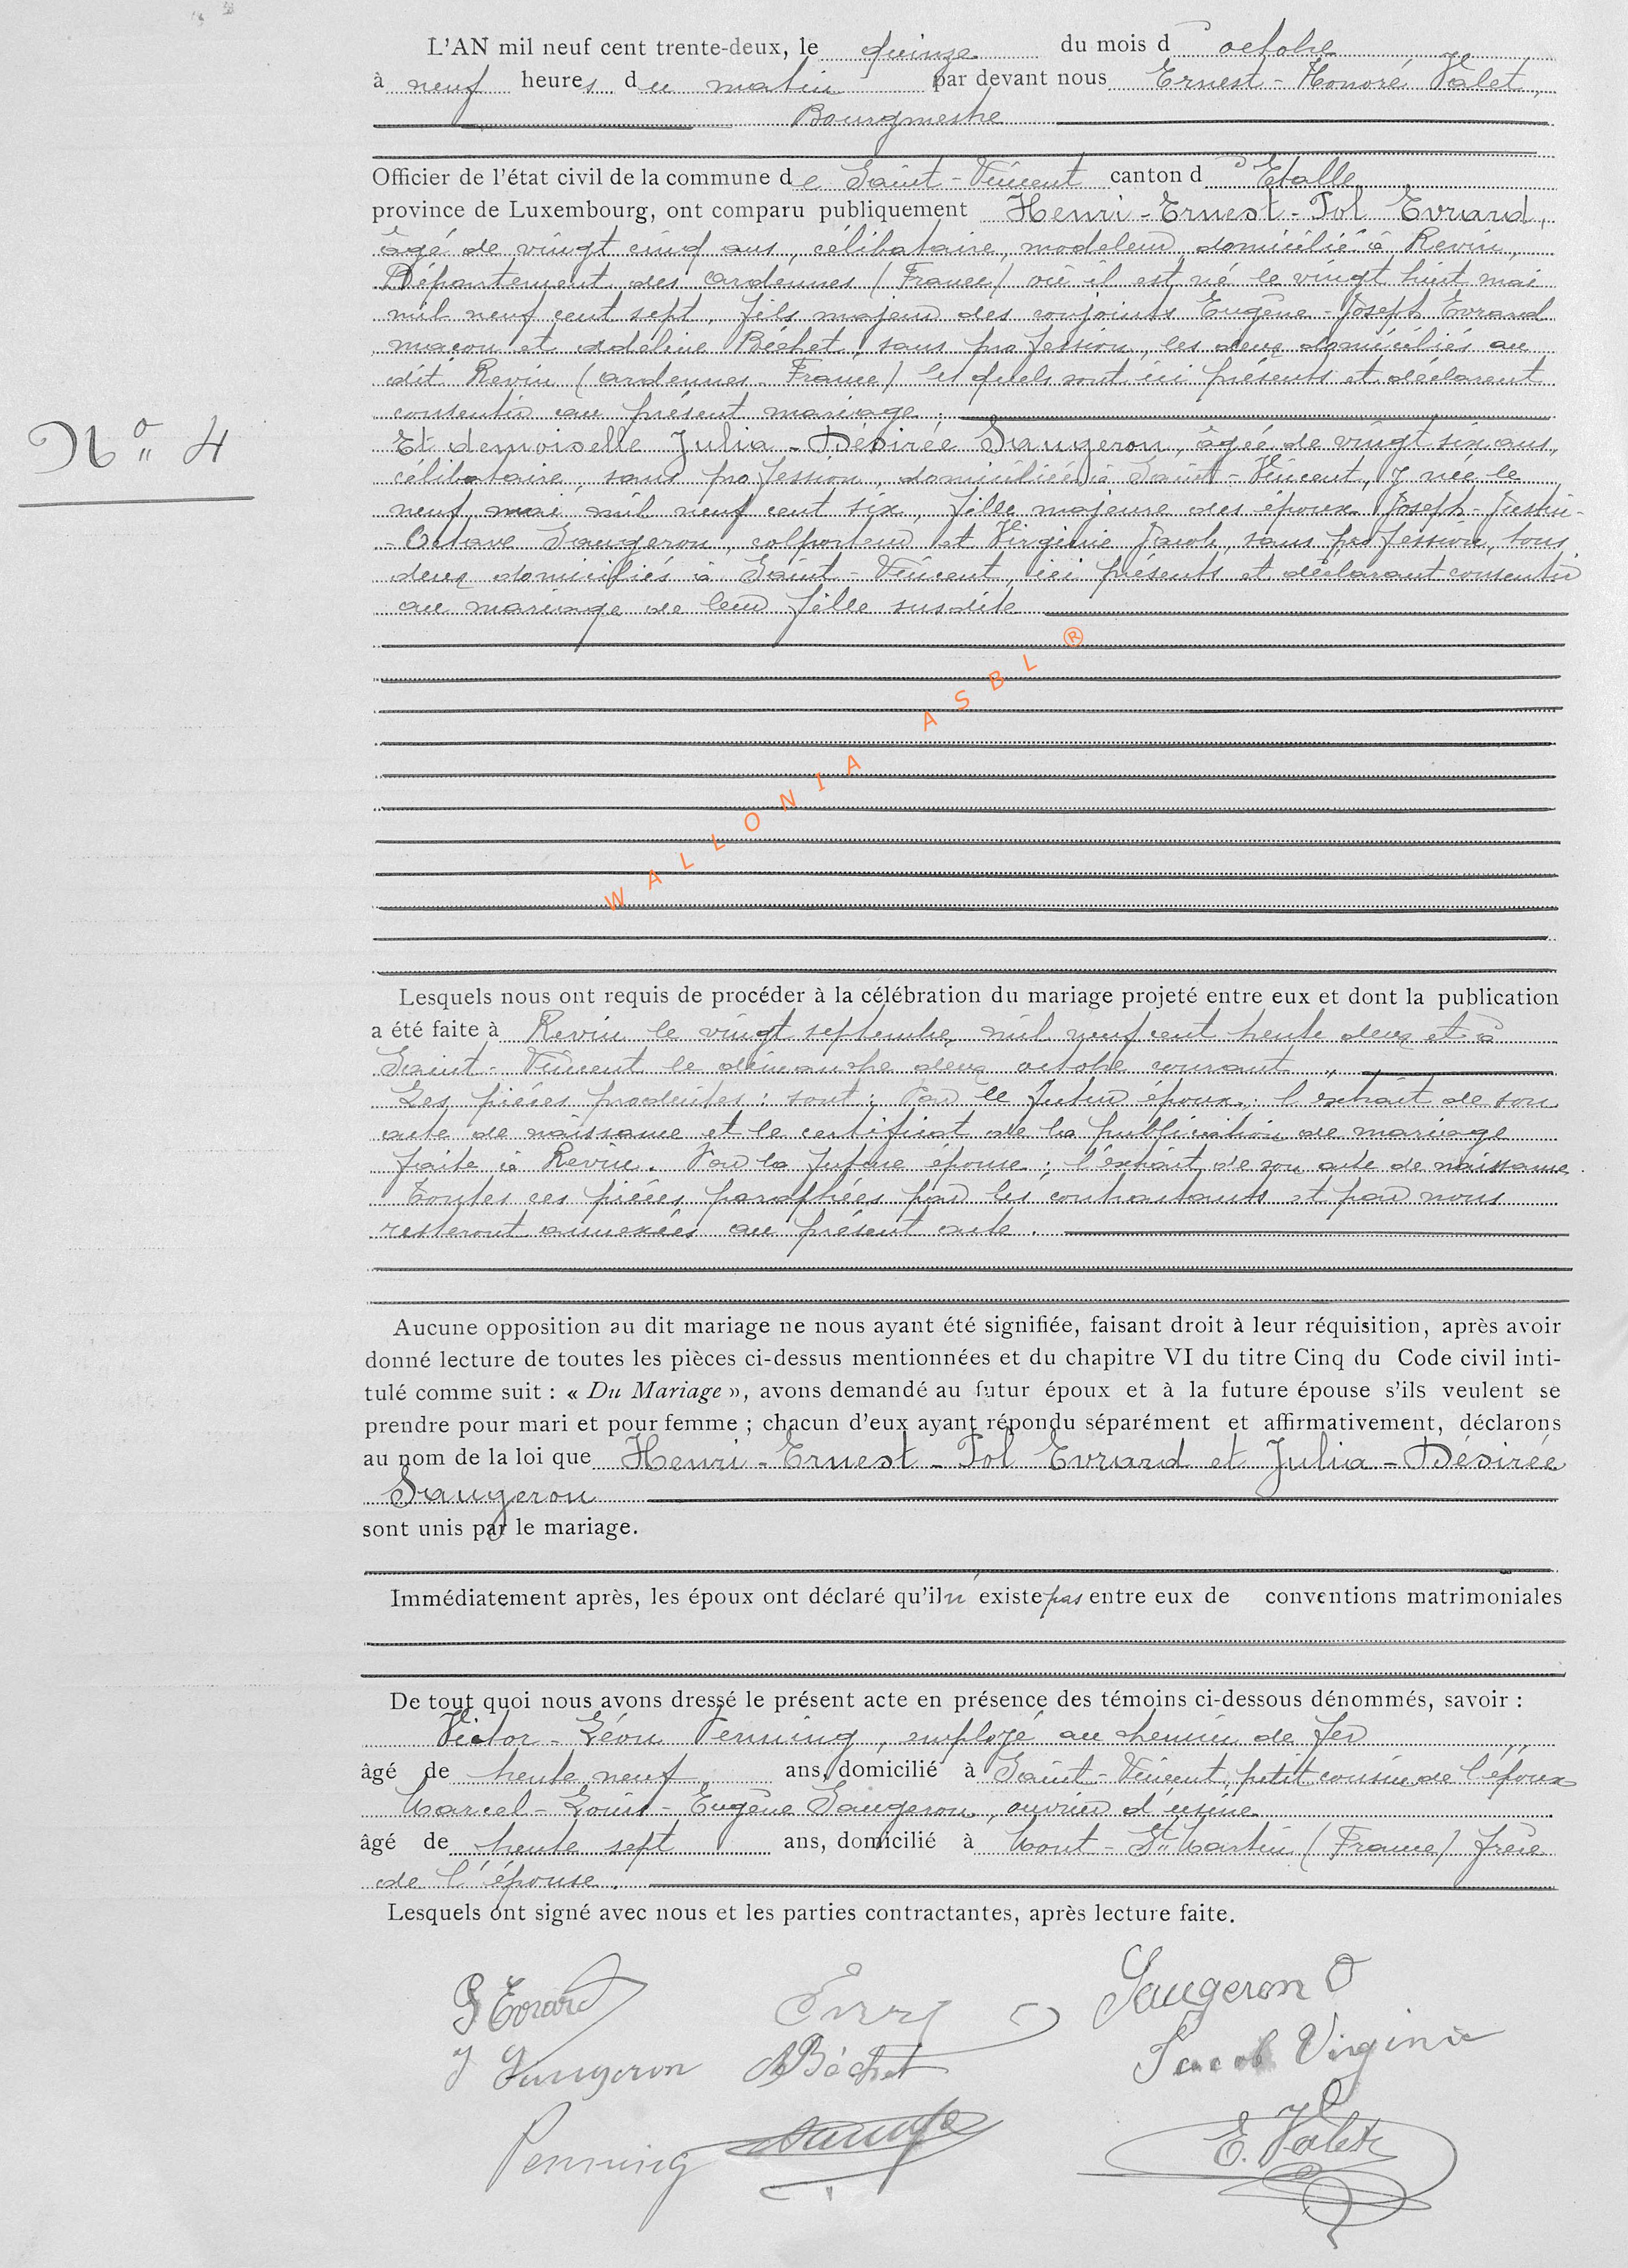 L'AN mil neuf cent trente-deux, le quinze du mois d' octobre
à neuf heures du matin par devant nous Ernest-Honoré Valet,
Bourgmestre
Officier de l'état civil de la commune de Saint-Vincent canton d' Etalle
province de Luxembourg, ont comparu publiquement Henri-Ernest-Pol Evrard,
âgé de vingt cinq ans, célibataire, modeleur, domicilié à Revin,
Département des Ardennes (France) où il est né le vingt huit mai
mil neuf cent sept, fils majeur des conjoints Eugène-Joseph Evrard
maçon et Adeline Béchet, sans profession, les deux domiciliés au
dit Revin (Ardennes-France) lesquels sont ici présents et déclarent
consentir au présent mariage;
N° 4
Et demoiselle Julia-Désirée Saugeron, âgée de vingt six ans,
célibataire, sans profession, domiciliée à Saint-Vincent, y née le
neuf mai mil neuf cent six, fille majeure des époux Joseph-Justin-
-Octave Saugeron, colporteur et Virginie Jacob, sans profession, tous
deux domiciliés à Saint-Vincent, ici présents et déclarant consentir
au mariage de leur fille susdite
WALLONIA ASBL ®
Lesquels nous ont requis de procéder à la célébration du mariage projeté entre eux et dont la publication
a été faite à Revin le vingt septembre mil neuf cent trente deux et à
Saint-Vincent le dimanche deux octobre courant.
Les pièces produites: sont: Par le futur époux: l'extrait de son
acte de naissance et le certificat de la publication de mariage
faite à Revin. Par la future épouse: l'extrait de son acte de naissance.
Toutes ces pièces paraphées par les contractants et par nous
resteront annexées au présent acte.
Aucune opposition au dit mariage ne nous ayant été signifiée, faisant droit à leur réquisition, après avoir
donné lecture de toutes les pièces ci-dessus mentionnées et du chapitre VI du titre Cinq du Code civil inti-
tulé comme suit : « Du Mariage », avons demandé au futur époux et à la future épouse s'ils veulent se
prendre pour mari et pour femme ; chacun d'eux ayant répondu séparément et affirmativement, déclarons
au nom de la loi que Henri-Ernest-Pol Evrard et Julia-Désirée
Saugeron
sont unis par le mariage.
Immédiatement après, les époux ont déclaré qu'il n'existe pas entre eux de conventions matrimoniales
De tout quoi nous avons dressé le présent acte en présence des témoins ci-dessous dénommés, savoir :
Victor-Léon Penning, employé au chemin de fer
âgé de trente neuf ans, domicilié à Saint-Vincent, petit cousin de l'époux
Marcel-Louis-Eugène Saugeron, ouvrier d'usine
âgé de trente sept ans, domicilié à Mont-St Martin (France) frère
de l'épouse.
Lesquels ont signé avec nous et les parties contractantes, après lecture faite.
P Evrard Saugeron O
J Saugeron A Béchet Jacob Virginie
Penning E. Valet